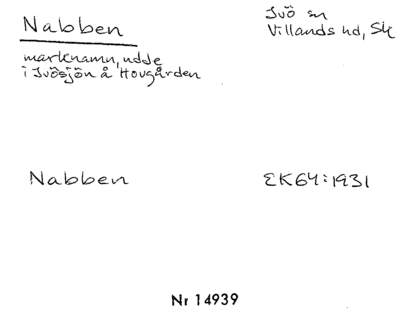 Nabben
Ivö sn
Villands hd, Sk
marknamn, udde
i Ivösjön å Hovgården
Nabben
EK64:1931
Nr 14939